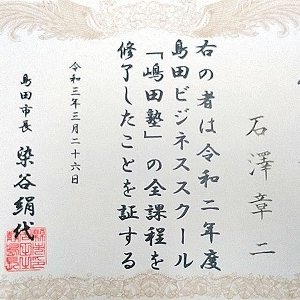 石澤章二
右の者は令和二年度
島田ビジネススクール
「嶋田塾」の全課程を
修了したことを証する
令和三年三月二十六日
島田市長 染谷絹代